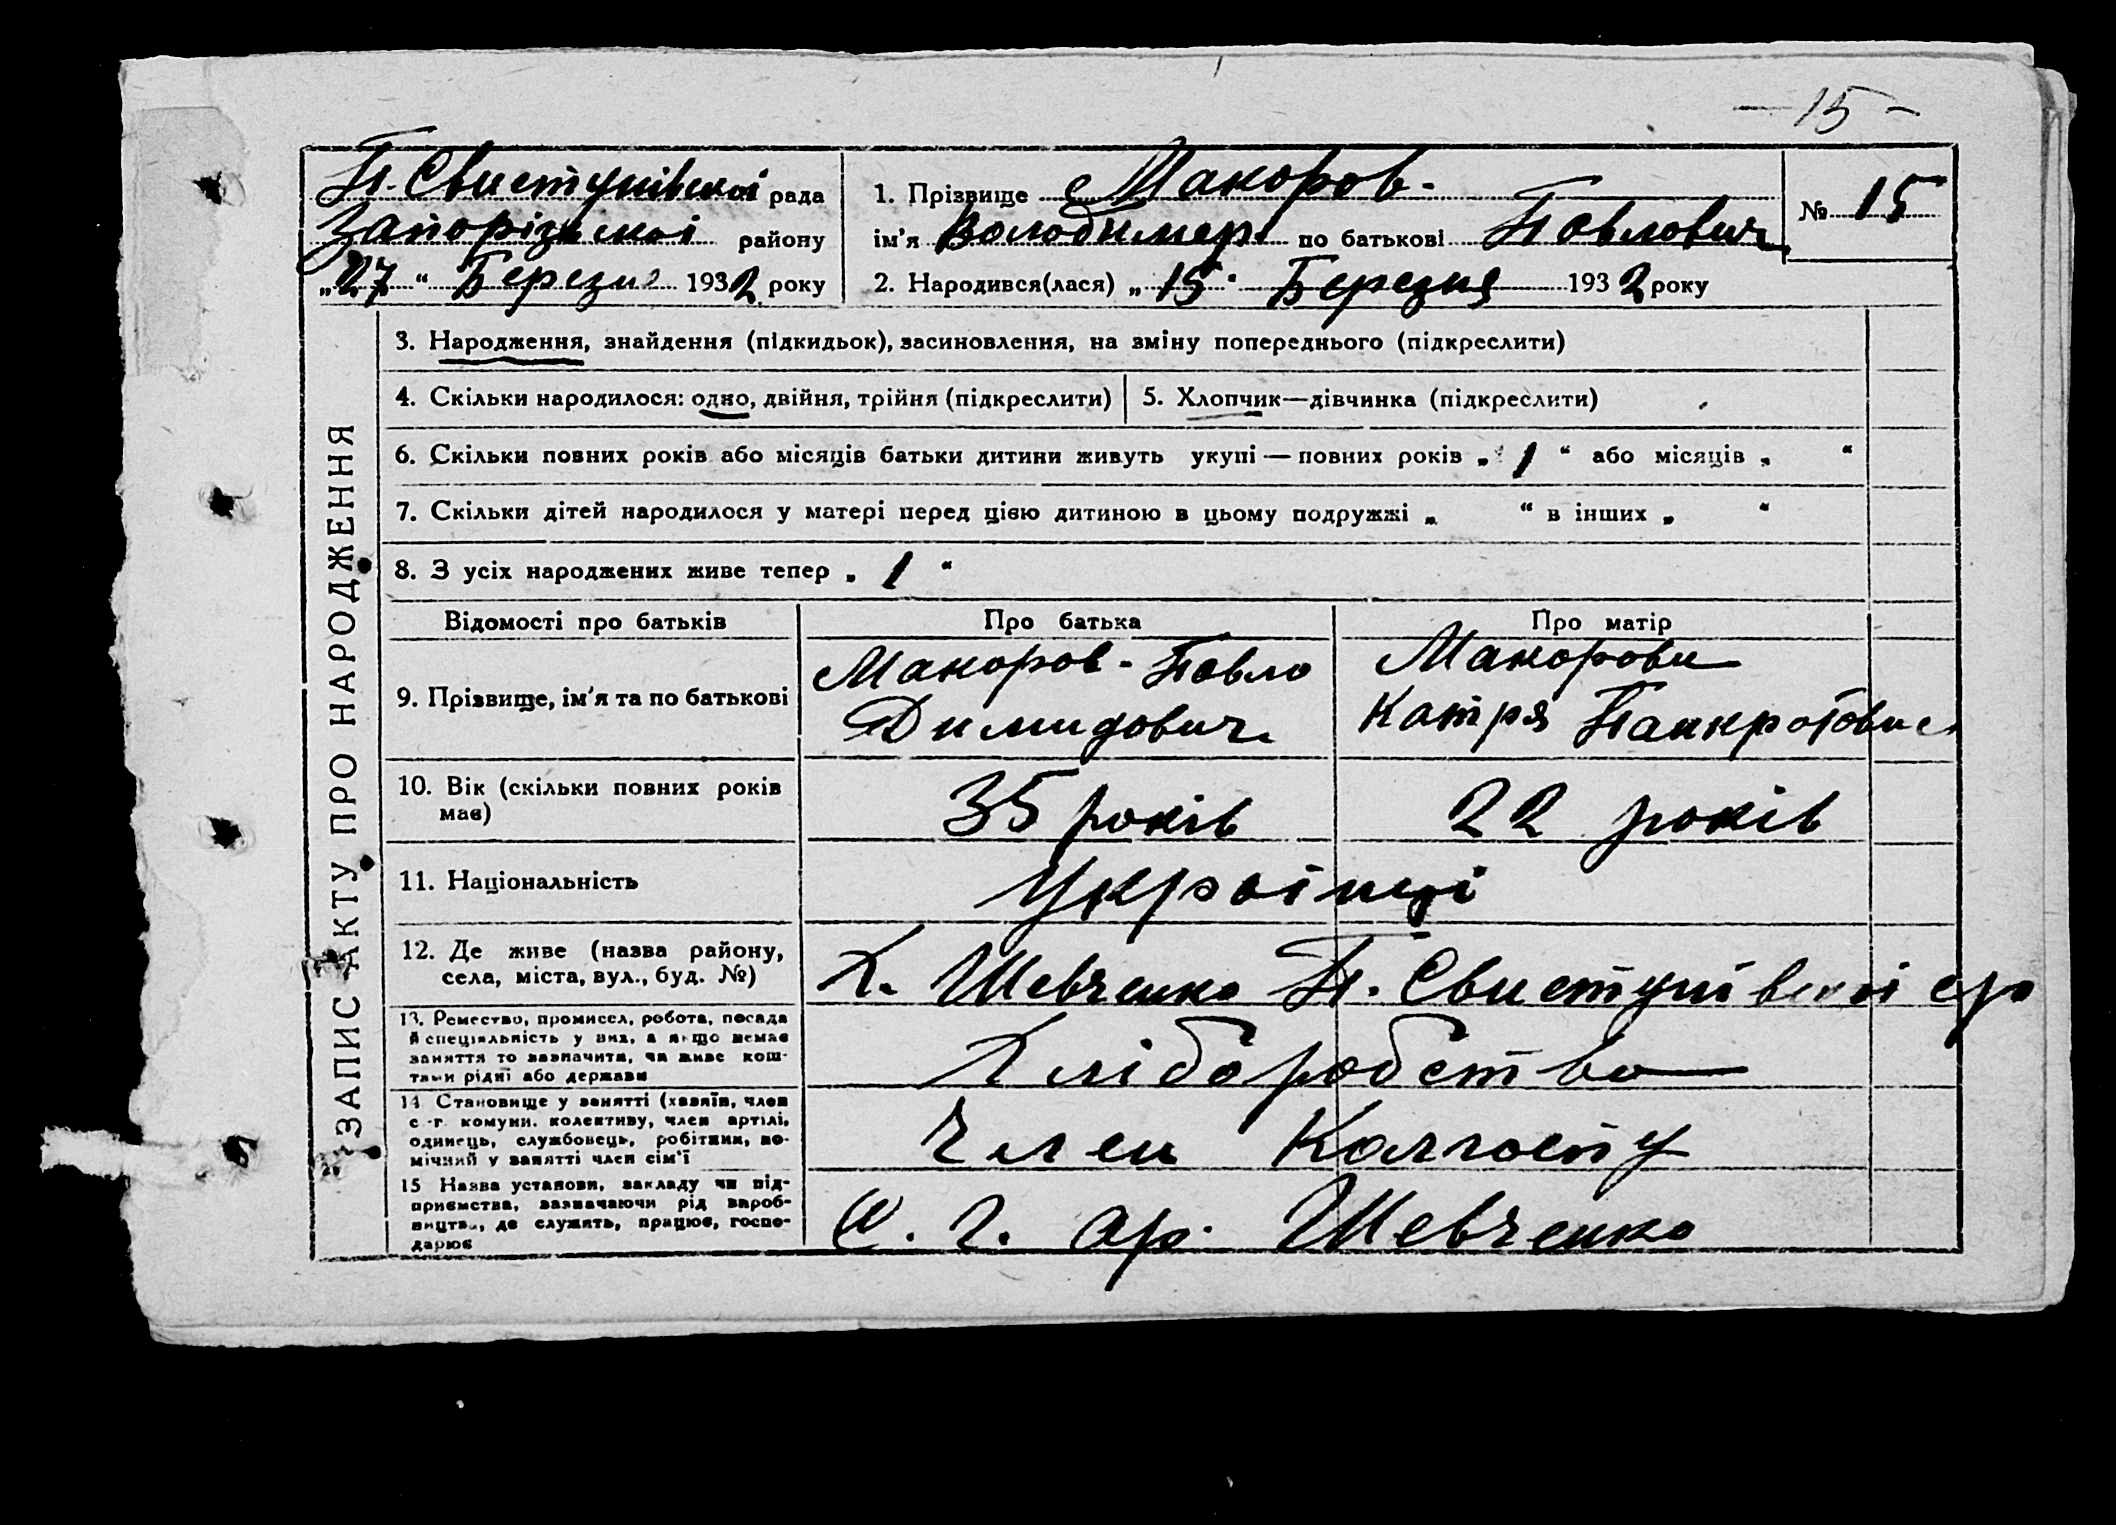 — 15 —
П. Свистунівскої рада
Запорізької району
„27“ Березня 1932 року
1. Прізвище Макоров
ім'я Володимер по батькові Павлович
2. Народився(лася) „15“ Березня 1932 року
№ 15
ЗАПИС АКТУ ПРО НАРОДЖЕННЯ
3. Народження, знайдення (підкидьок), засиновлення, на зміну попереднього (підкреслити)
4. Скільки народилося: одно, двійня, трійня (підкреслити)
5. Хлопчик—дівчинка (підкреслити)
6. Скільки повних років або місяців батьки дитини живуть укупі — повних років „1“ або місяців „ “
7. Скільки дітей народилося у матері перед цією дитиною в цьому подружжі „ “ в інших „ “
8. З усіх народжених живе тепер „1“
Відомості про батьків
Про батька
Про матір
9. Прізвище, ім'я та по батькові
Макоров - Павло
Димидович
Макорови
Катря Панкратови
10. Вік (скільки повних років
має)
35 років
22 років
11. Національність
Українці
12. Де живе (назва району,
села, міста, вул., буд. №)
Х. Шевченко П. Свистунівскої с/р
13. Ремество, промисел, робота, посада
й спеціяльність у них, а якщо немає
заняття то зазначити, чи живе кош-
тами рідні або держави
Хліборобство
14 Становище у занятті (хазяїн, член
с.-г. комуни. колективу, член артілі,
одинець, службовець, робітник, по-
мічний у занятті член сім'ї
Член Колгоспу
15 Назва установи, закладу чи під-
приємства, зазначаючи рід вироб-
ництва, де служить, працює, госпо-
дарює
С. г. ар. Шевченко